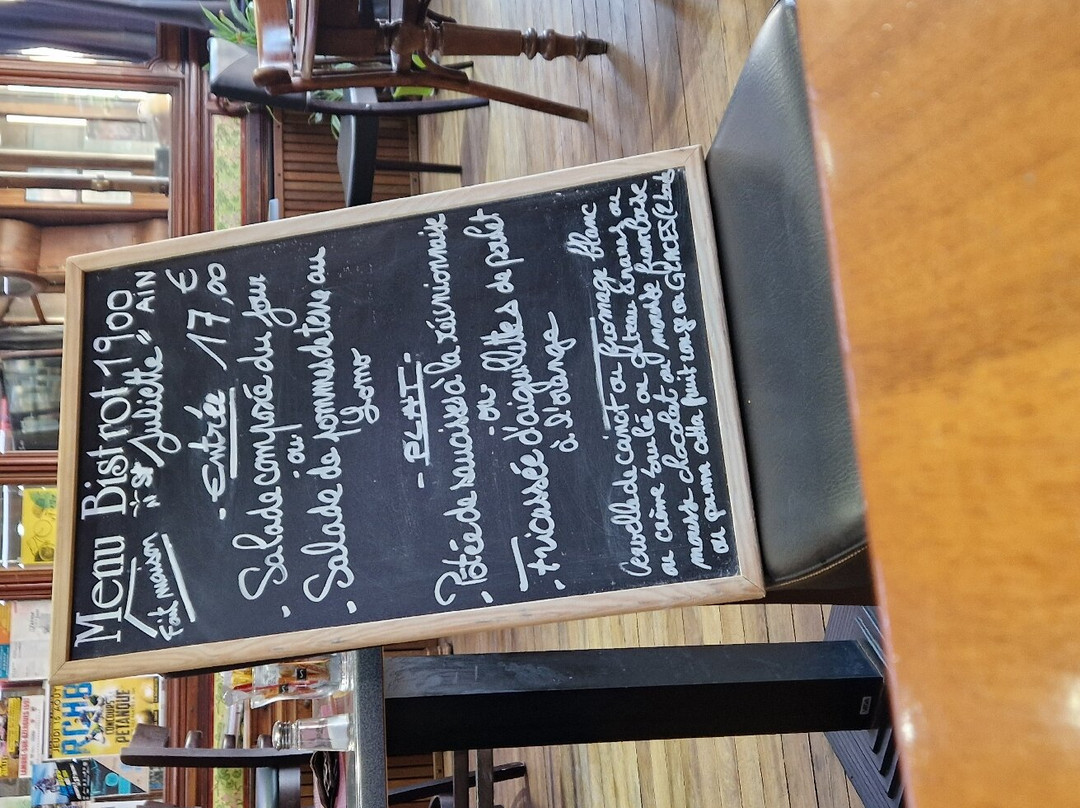 Menu Bistrot 1900
Fait maison
"Juliette" AIN
- Entrée 17,00 €
- Salade composé du jour
ou
- Salade de pommes de terre au
- PLAT -
- Potée de saucisses à la réunionnaise
ou
- Fricassée d'aiguillettes de poulet
à l'orange
Cervelle de canut ou fromage blanc
ou crème brulé ou gâteau ananas ou
mousse chocolat ou mousse framboise
ou panna cotta fruit rouge ou GLACES
JEUDI 15 AOÛT
PÉTANQUE